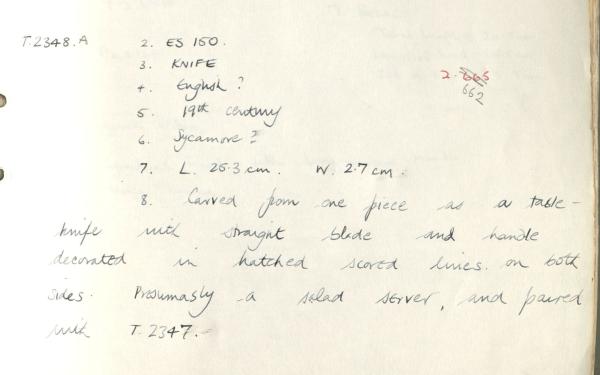 T.2348.A 2. ES 150.
3. KNIFE
2.665
4. English?
662
5. 19th century
6. Sycamore?
7. L. 26.3 cm. W. 2.7 cm.
8. Carved from one piece as a table-
knife with straight blade and handle
decorated in hatched scored lines. on both
sides. Presumably a salad server, and paired
with T. 2347.-